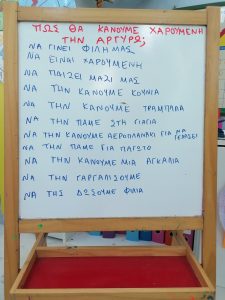 ΠΩΣ ΘΑ ΚΑΝΟΥΜΕ ΧΑΡΟΥΜΕΝΗ
ΤΗΝ ΑΡΓΥΡΩ;
ΝΑ ΓΙΝΕΙ ΦΙΛΗ ΜΑΣ
ΝΑ ΕΙΝΑΙ ΧΑΡΟΥΜΕΝΗ
ΝΑ ΠΑΙΖΕΙ ΜΑΖΙ ΜΑΣ
ΝΑ ΤΗΝ ΚΑΝΟΥΜΕ ΚΟΥΝΙΑ
ΝΑ ΤΗΝ ΚΑΝΟΥΜΕ ΤΡΑΜΠΑΛΑ
ΝΑ ΤΗΝ ΠΑΜΕ ΣΤΗ ΓΙΑΓΙΑ
ΝΑ ΤΗΝ ΚΑΝΟΥΜΕ ΑΕΡΟΠΛΑΝΑΚΙ ΓΙΑ ΝΑ ΓΕΛΑΣΕΙ
ΝΑ ΤΗΝ ΠΑΜΕ ΓΙΑ ΠΑΓΩΤΟ
ΝΑ ΤΗΝ ΚΑΝΟΥΜΕ ΜΙΑ ΑΓΚΑΛΙΑ
ΝΑ ΤΗΝ ΓΑΡΓΑΛΙΣΟΥΜΕ
ΝΑ ΤΗΣ ΔΩΣΟΥΜΕ ΦΙΛΙΑ